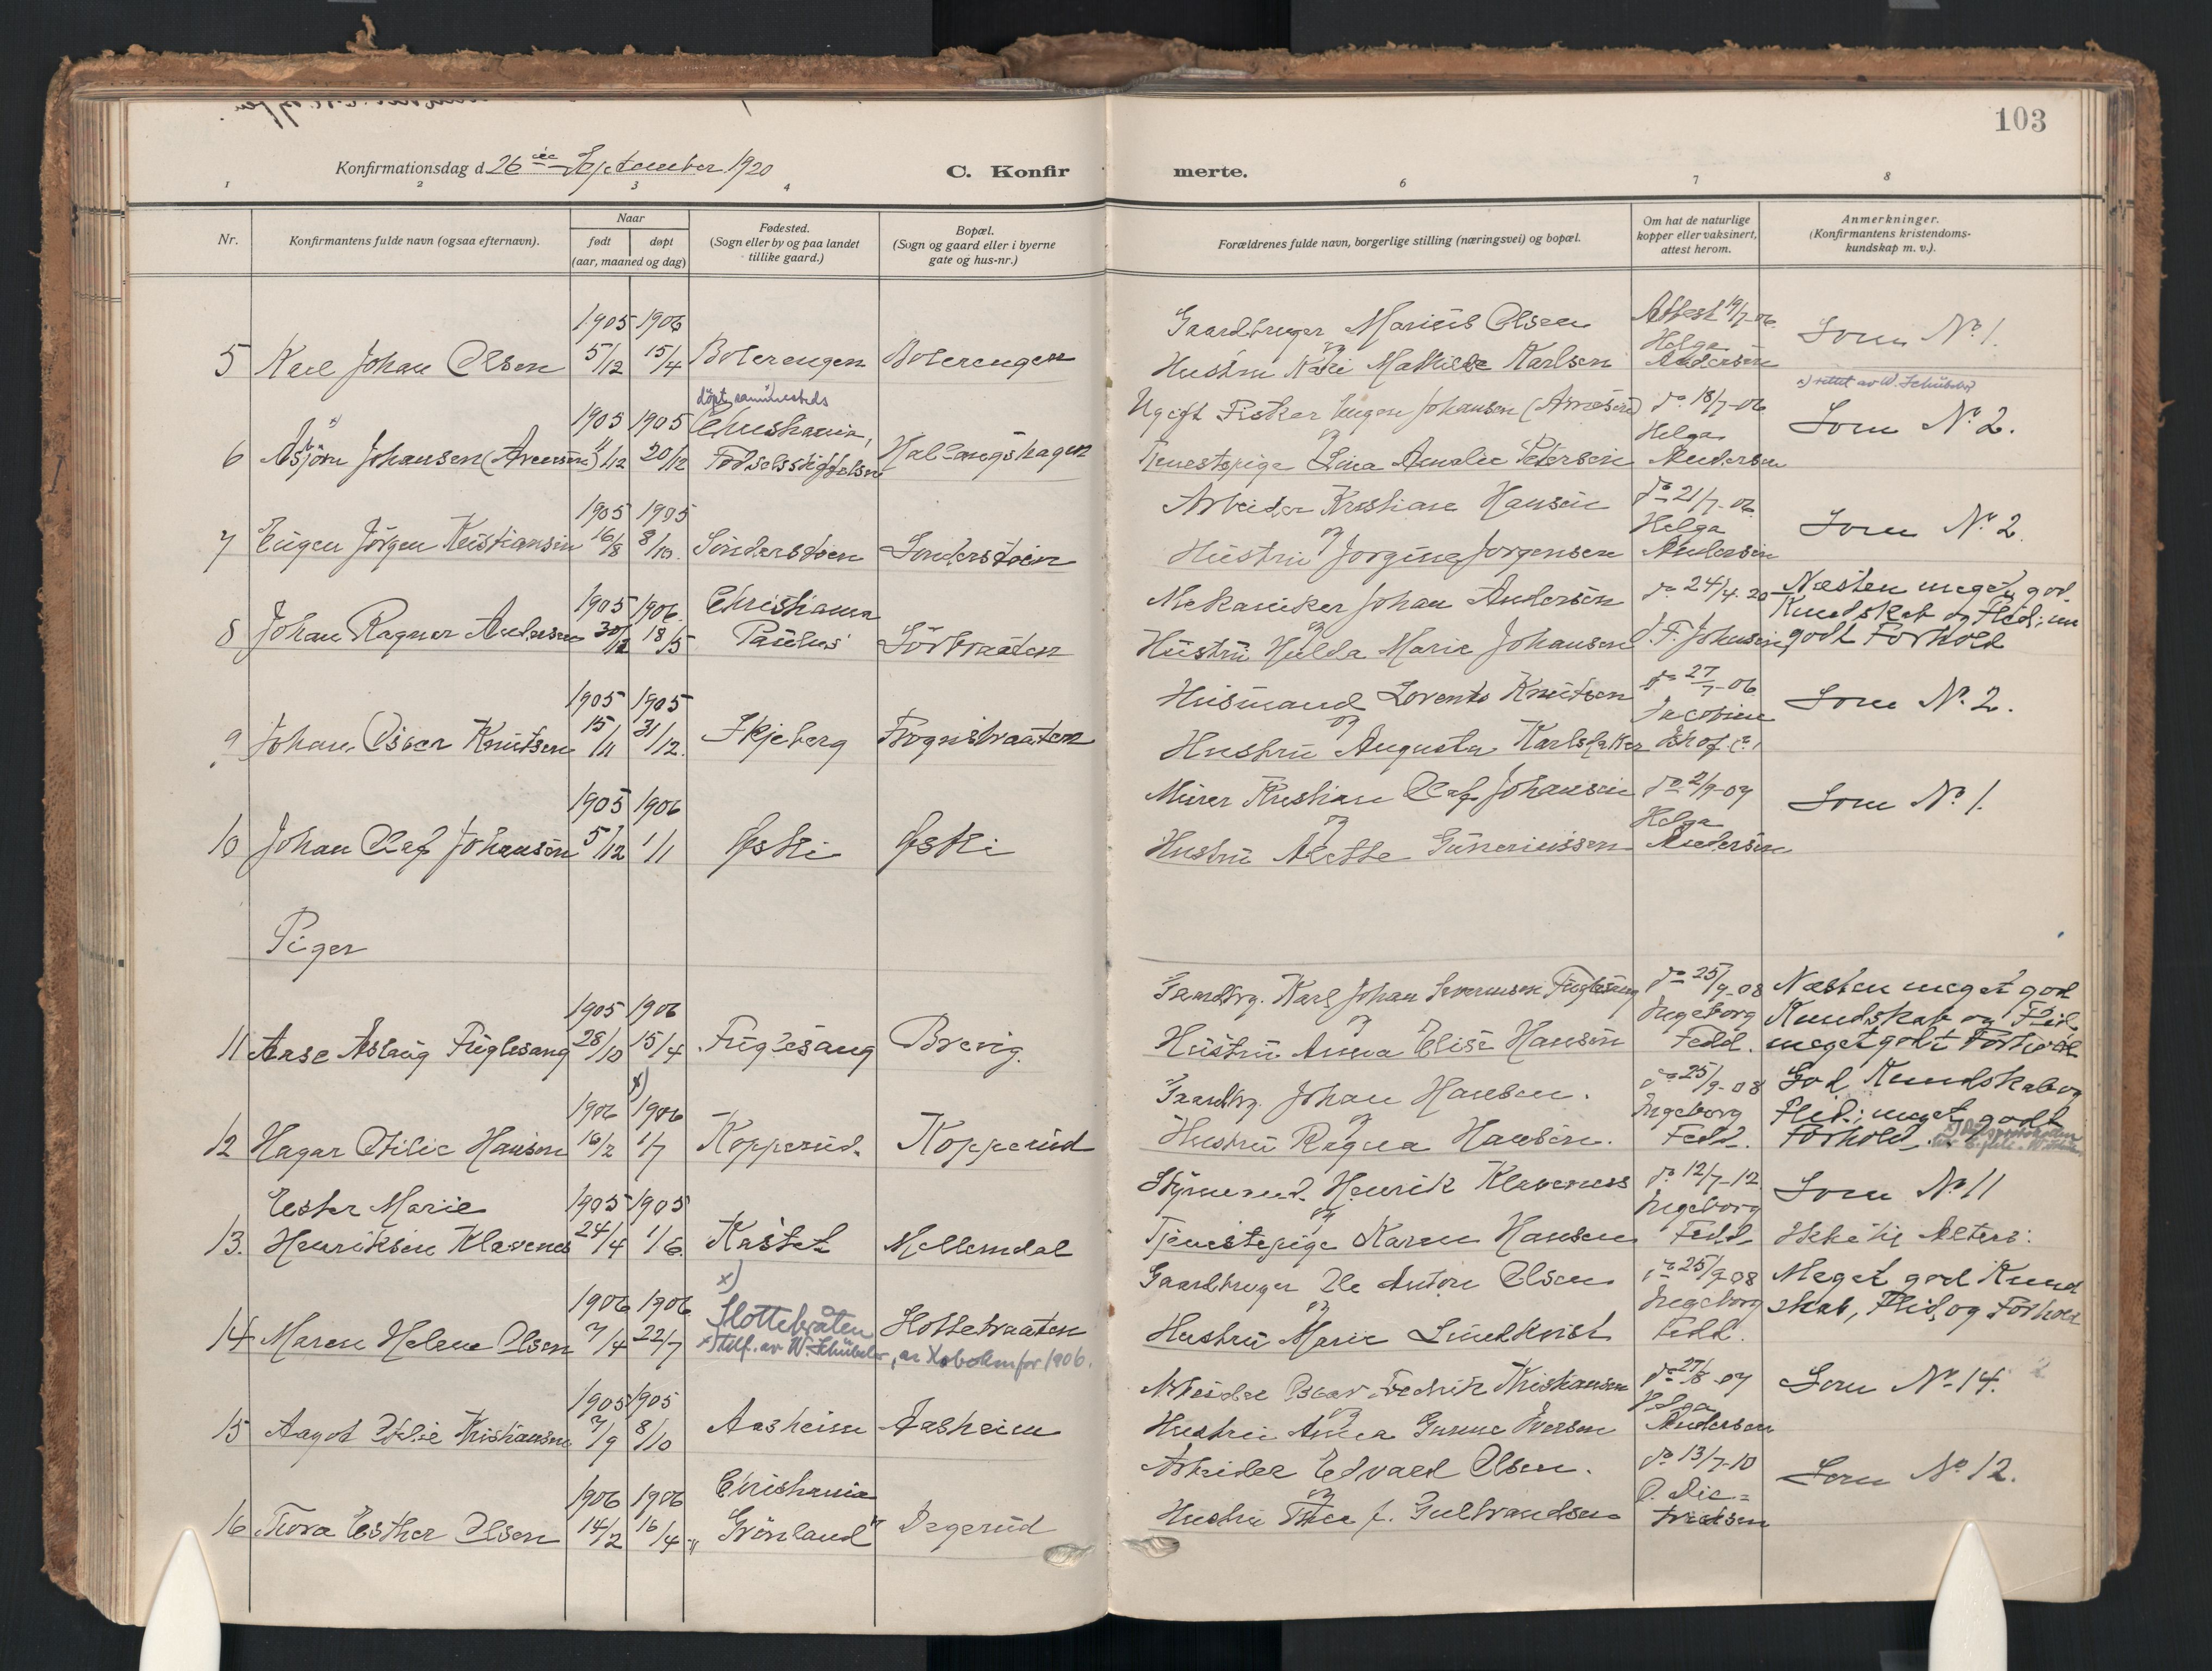 103
Konfirmationsdag d. 26de September 1920
C. Konfirmerte.
1 2 3 4 6 7 8
Nr.
Konfirmantens fulde navn (ogsaa efternavn).
Naar
født døpt
(aar, maaned og dag)
Fødested.
(Sogn eller by og paa landet
tillike gaard.)
Bopæl.
(Sogn og gaard eller i byerne
gate og hus-nr.)
Forældrenes fulde navn, borgerlige stilling (næringsvei) og bopæl.
Om hat de naturlige
kopper eller vaksinert,
attest herom.
Anmerkninger.
(Konfirmantens kristendoms-
kundskap m. v.).
1905 1906 Gaardbruger Marius Olsen Attest 19/7-06 Som No 1.
5 Karl Johan Olsen 5/12 15/4 Bolerengen Bolerengen og Helga
Hustru Mathilde Karlsen Andersen
døpt sammesteds x) rettet av W. Schübeler
1905 1905 Christiania, Ugift Fisker Eugen Johansen (Arnesen) do 18/7-06 Som No 2.
6 Asbjørn Johansen (Arnesen) 11/12 20/12 Fødselsstiftelsen Hallangshagen og Helga
Tjenestepige Lina Amalie Petersen Andersen
1905 1905 Arbeider Kristian Hansen do 21/7-06 Som No 2.
7 Eugen Jörgen Kristiansen 16/8 8/10. Sönderstöen Sönderstöen og Helga
Hustru Jorgine Jorgensen Andersen
1905 1906 Christiania Mekaniker Johan Andersen do 24/4-20 Næsten meget god
8 Johan Ragnar Andersen 30/12 18/5 Paulus Sörbraaten og Kundskab og Flid;
Hustru Hulda Marie Johansen J. F. Johnsen godt Forhold
1905 1905 Husmand Lorents Knutsen do 27/7-06 Som No 2.
9 Johan Oscar Knutsen 15/11 31/12. Skjeberg Frognsbraaten og Jacobine
Hustru Augusta Karlsdatter
1905 1906 Murer Kristian Olaf Johansen do 2/9-07 Som No 1.
10 Johan Olaf Johansen 5/12 1/1 Øski Øski og Helga
Hustru Alette Gunneriussen Andersen
Piger
1905 1906 Gaardbrg. Karl Johan Severinsen Fuglesang do 25/9-08 Næsten meget god
11 Aase Aslaug Fuglesang 28/10 15/4 Fuglesang Brevig. og Ingeborg Kundskab og Flid,
Hustru Anna Elise Hansen Fedd. meget godt Forhold
x)
1906 1906 Gaardbrg. Johan Hansen. do 25/9-08 God Kundskab og
12 Hagar Otilie Hansen 16/2 1/7 Kopperud. Kopperud og Ingeborg Flid; meget godt
Hustru Ragna Hansen. Fedd. Forhold.
Ester Marie 1905 1905 Styrmand Henrik Klavenes do 12/7-12 Som No 11
13. Henriksen Klavenes 24/4 1/6. Kastet Mellemdal og Ingeborg
Tjenestepige Karen Hansen Fedd
1906 1906 x) Gaardbruger Ole Anton Olsen do 25/9-08 Meget god Kund
14 Maren Helene Olsen 7/4 22/7 Slottebråten Slottebraaten og Ingeborg skab, Flid og Forhold
x) tilf. av W. Schübeler, Hustru Marie Lindkvist Fedd.
1905 1905 Arbeider Oscar Fredrik Kristiansen do 27/8-07 Som No 14.
15 Aagot Otilie Kristiansen 7/9 8/10 Aasheim Aasheim og Helga
Hustru Anna Gunne Iversen Andersen
1906 1906 Christiania Arbeider Edvard Olsen. do 13/7-10 Som No 12.
16 Thora Esther Olsen 14/2 16/4 "Grönland" Degerud og O. Die=
Hustru Thea f. Gulbrandsen trichsen